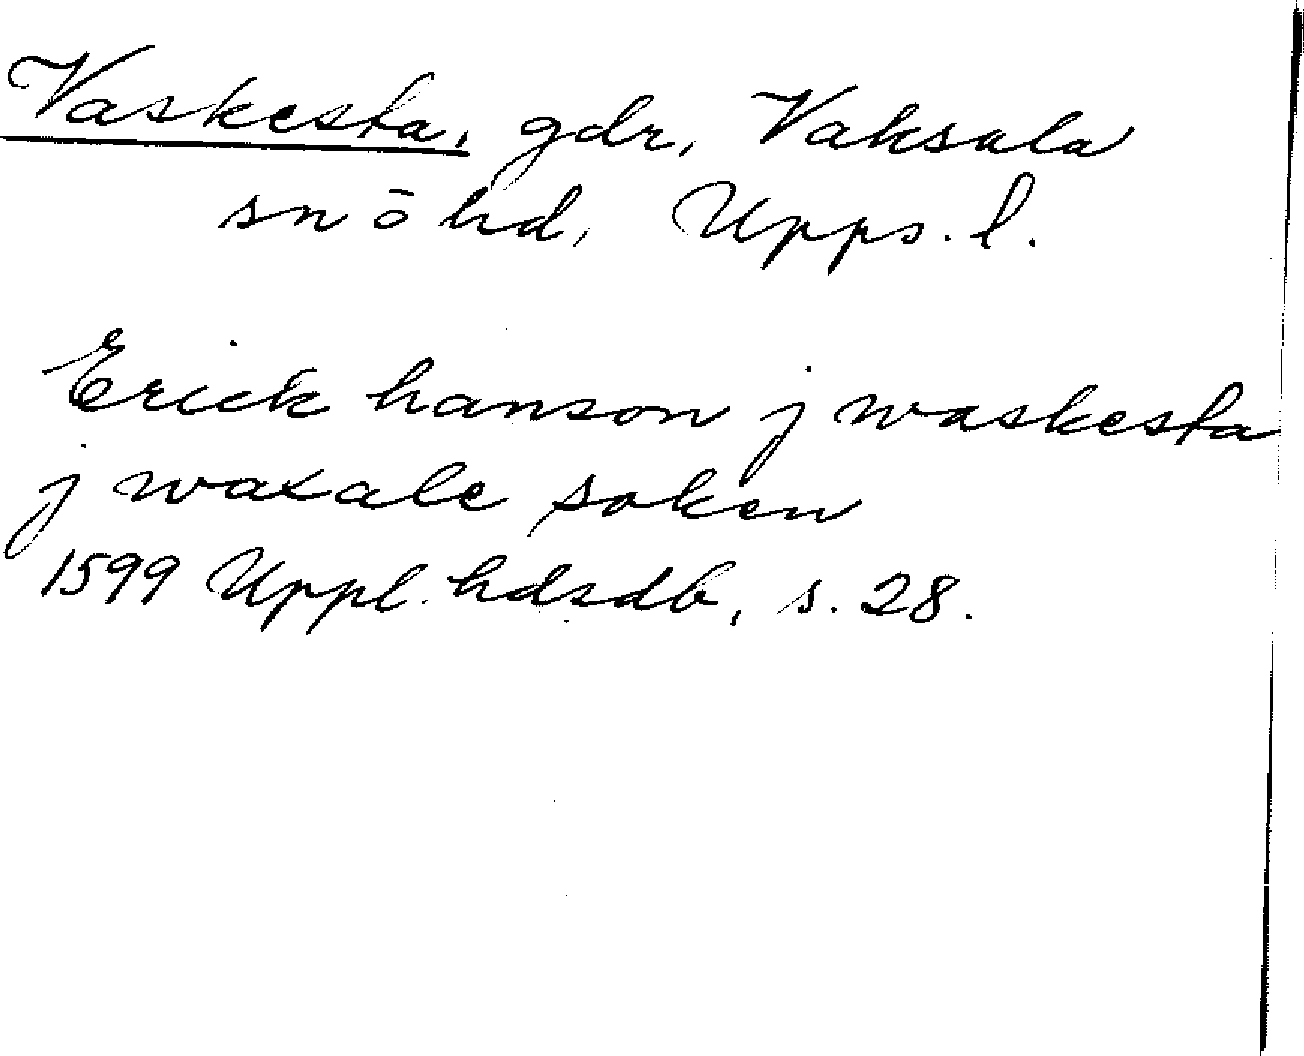 Vaskesta, gdr, Vaksala
sn ō hd, Upps. l.
Erick hanson j waskesta
j waxale soken
1599 Uppl. hdsdb, s. 28.